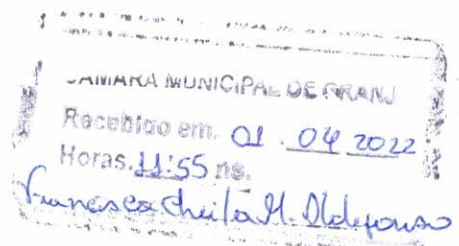 CAMARA MUNICIPAL DE GRANJ
Recebido em. 01 . 04 2022
Horas. 11:55 hs.
Francisca Cheila M. Ildefonso